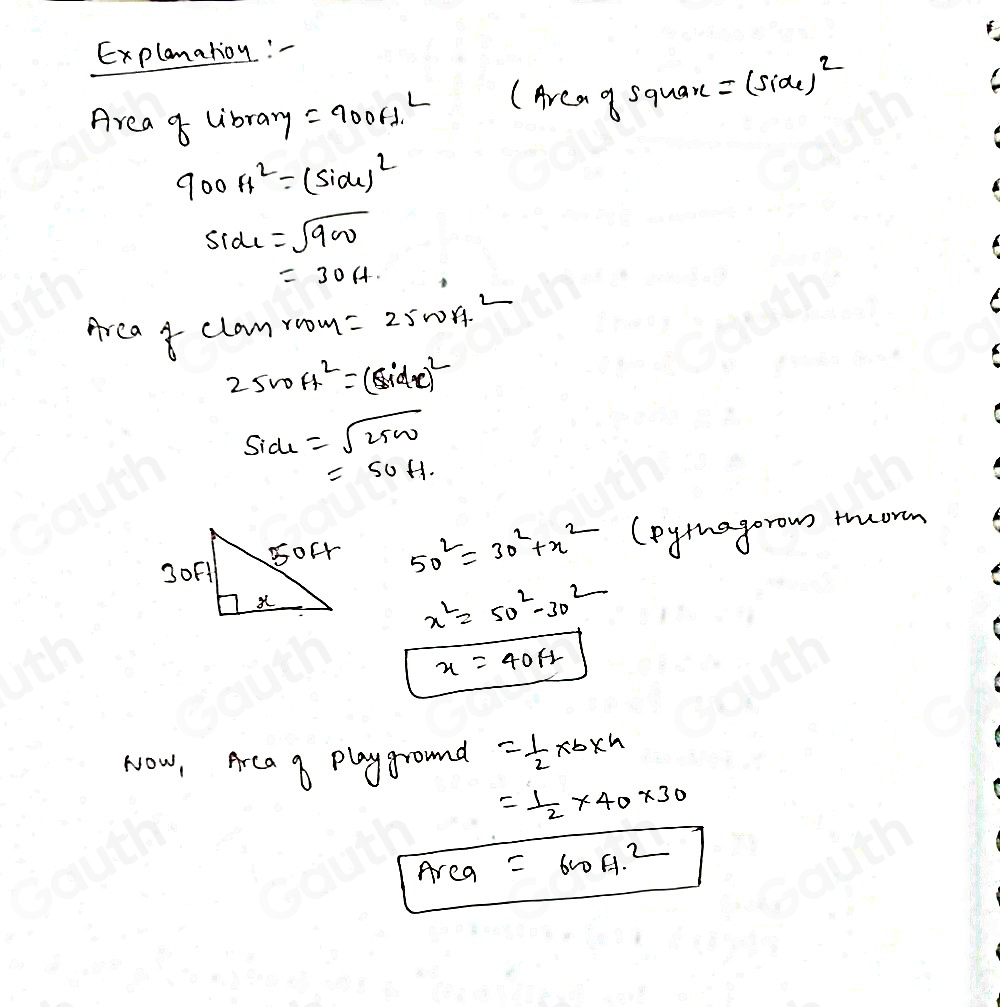 Explanation :-
Area of library = 900ft.² (Area of square = (side)²
900 ft² = (side)²
side = √900
= 30 ft.
Area of class room = 2500ft.²
2500 ft² = (side)²
Side = √2500
= 50 ft.
30Ft 50Ft x
50² = 30² + x² (pythagorous theorem
x² = 50² - 30²
x = 40ft
Now, Area of playground = 1/2 × b × h
= 1/2 × 40 × 30
Area = 600 ft.²
Gauth